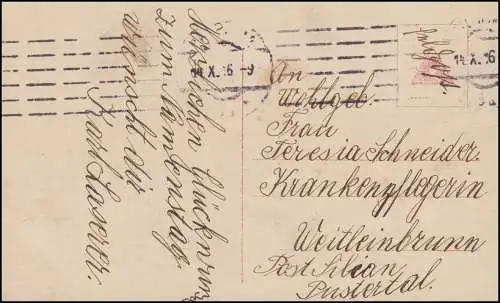 Herzlichen Glückwunsch
zum Namenstag
wünscht dir
Karl Laserer.
14. X. 16 - 9
14. X. 16
Feldpost.
An
Wohlgeb.
Frau
Teresia Schneider.
Krankenpflegerin
Weitleinbrunn
Post Silian
Pustertal.